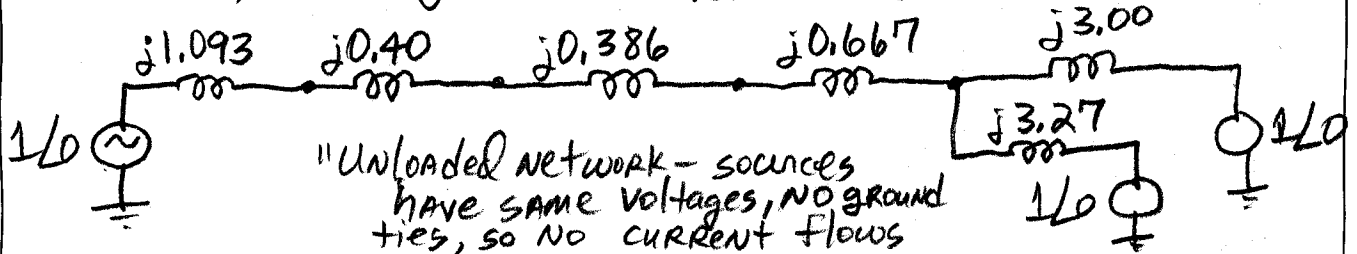 j1.093 j0.40 j0.386 j0.667 j3.00
j3.27
1/0 1/0
"Unloaded network - sources
have same voltages, no ground 1/0
ties, so no current flows